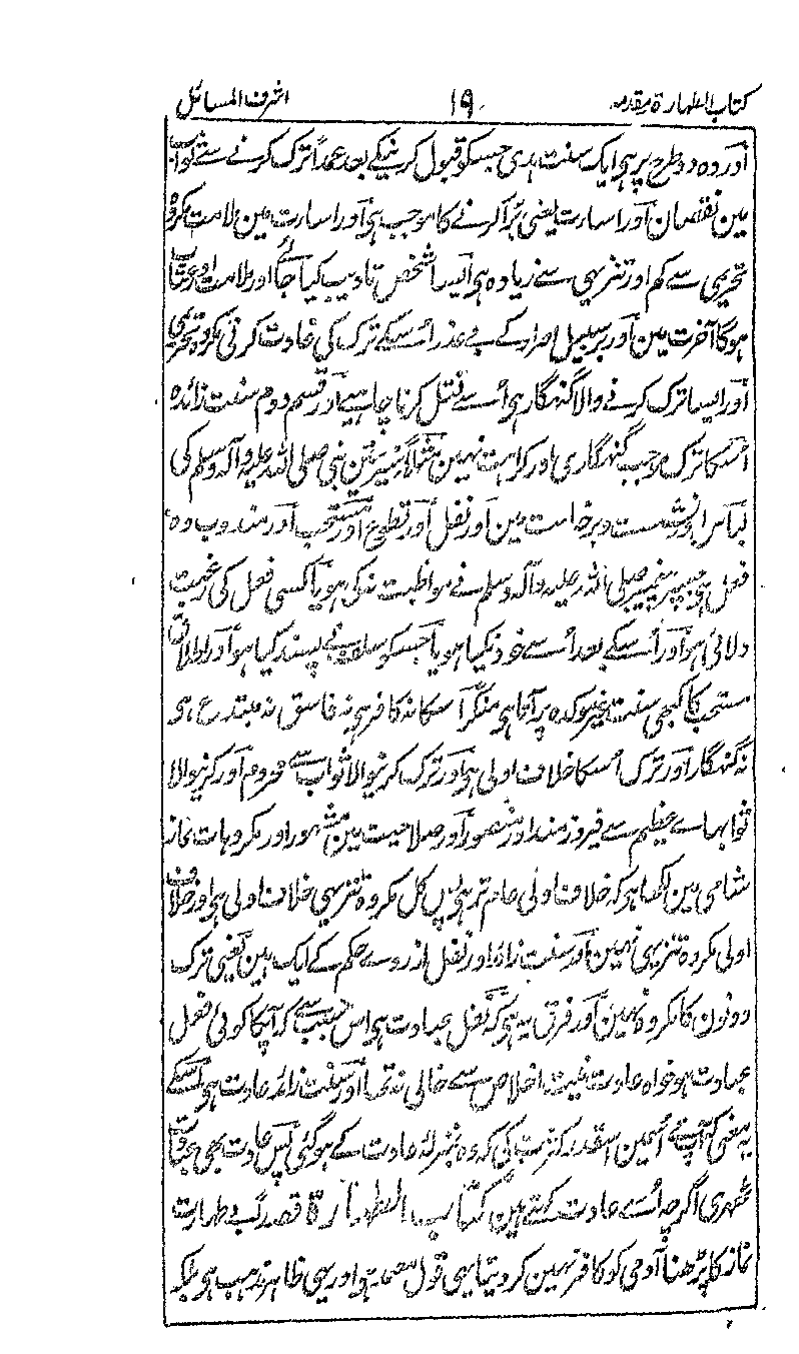 کتاب الطہارۃ مقدمہ ۱۹ اشرف المسائل
اور وہ دو طرح پر ہی ایک سنت ہدی جسکو قبول کرنیکے بعد عمداً ترک کرنے سے ثواب
مین نقصان اور اساءت یعنی بُرا کرنے کا موجب ہی اور اساءت مین ملامت مکروہ
تحریمی سے کم اور تنزیہی سے زیادہ ہی ایسا شخص تادیب کیا جائے اور ملامت اور عتاب
ہوگا آخرت مین اور بر سبیل اصرار کے بے عذر اسکے ترک کی عادت کرنی مکروہ تحریمی
اور ایسا ترک کرنے والا گنہگار ہی اُسے قتل کرنا چاہیے اور قسم دوم سنت زائدہ
اسکا ترک موجب گنہگاری اور کراہت نہین مثلاً سیرتین نبی صلی اللہ علیہ وآلہ وسلم کی
لباس اور نشست و برخاست مین اور نفل اور تطوع اور مستحب اور مندوب وہ
فعل ہی جسپر پیغمبر صلی اللہ علیہ وآلہ وسلم نے مواظبت نہ کی ہو یا کسی فعل کی رغبت
دلائی ہو اور اُسکے بعد اُسے خود نکیا ہو یا جسکو سلف نے پسند کیا ہو اور اطلاق
مستحب کا کبھی سنت غیر موکدہ پر آتا ہی منکر اسکا نہ کافر ہی نہ فاسق نہ مبتدع ہی
نہ گنہگار اور ترک اسکا خلاف اولی ہی اور ترک کرنیوالا ثواب سے محروم اور کرنیوالا
ثوابہاے عظیم سے فیروزمند اور منصور اور صلاحیت مین مشہور اور مکروہات نماز
شامی مین لکھا ہی کہ خلاف اولی عام تر ہی پس کل مکروہ تنزیہی خلاف اولی ہی اور خلاف
اولی مکروہ تنزیہی نہین اور سنت زائد اور نفل ازروے حکم کے ایک ہین یعنی ترک
دونون کا مکروہ نہین اور فرق یہ ہی کہ نفل عبادت ہی اس سبب سے کہ آپکا کوئی فعل
عبادت ہو خواہ عادت نیت اخلاص سے خالی نہ تھا اور سنت زائد عادت ہی اسکے
یہ معنی کہ آپنے اُسمین اسقدر کثرت کی کہ وہ بمنزلہ عادت کے ہوگئی پس عادت بھی
ٹھہری اگرچہ اُسے عادت کہتے ہین کتاب الطہارۃ قصد بے طہارت
نماز کا پڑھنا آدمی کو کافر نہین کر دیتا یہی قول معتمد ہی اور یہی ظاہر مذہب ہی بلکہ